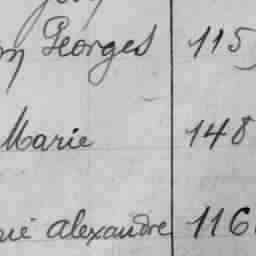 Georges 115
Marie 148
alexandre 116